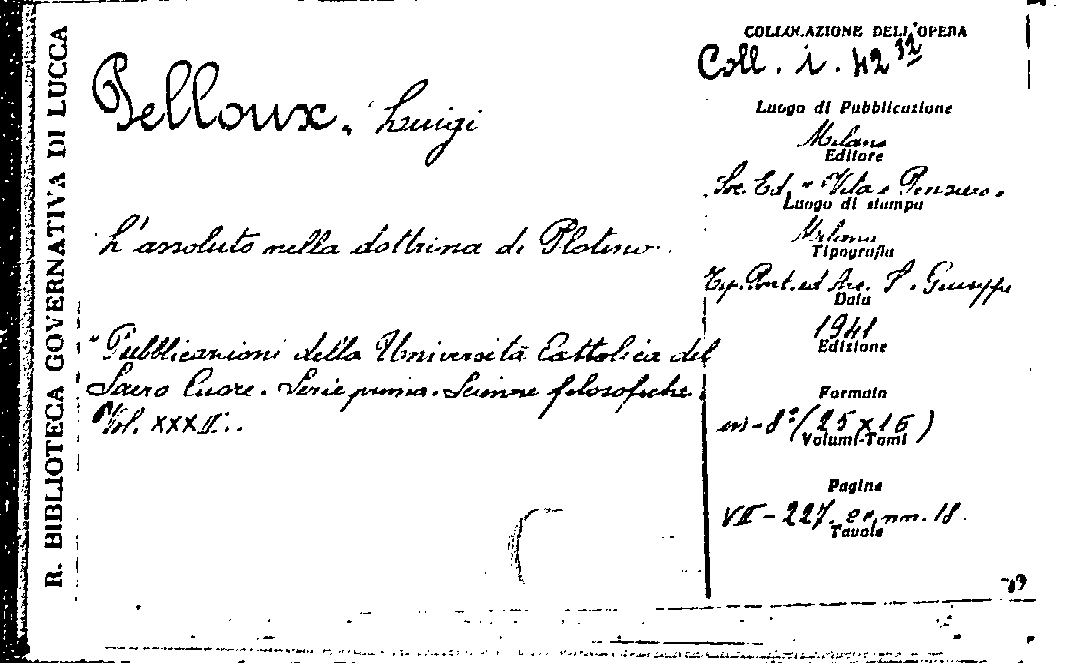 R. BIBLIOTECA GOVERNATIVA DI LUCCA
Pelloux, Luigi
L'assoluto nella dottrina di Plotino.
"Pubblicazioni della Università Cattolica del
Sacro Cuore. Serie prima. Scienze filosofiche.
Vol. XXXII..
COLLOCAZIONE DELL'OPERA
Coll. i. 42 32
Luogo di Pubblicazione
Milano
Editore
Soc. Ed. "Vita e Pensiero"
Luogo di stampa
Milano
Tipografia
Tip. Pont. ed Arc. S. Giuseppe
Data
1941
Edizione
Formato
in-8° (25 x 16)
Volumi-Tomi
Pagine
VII - 227. nn. 18.
Tavole